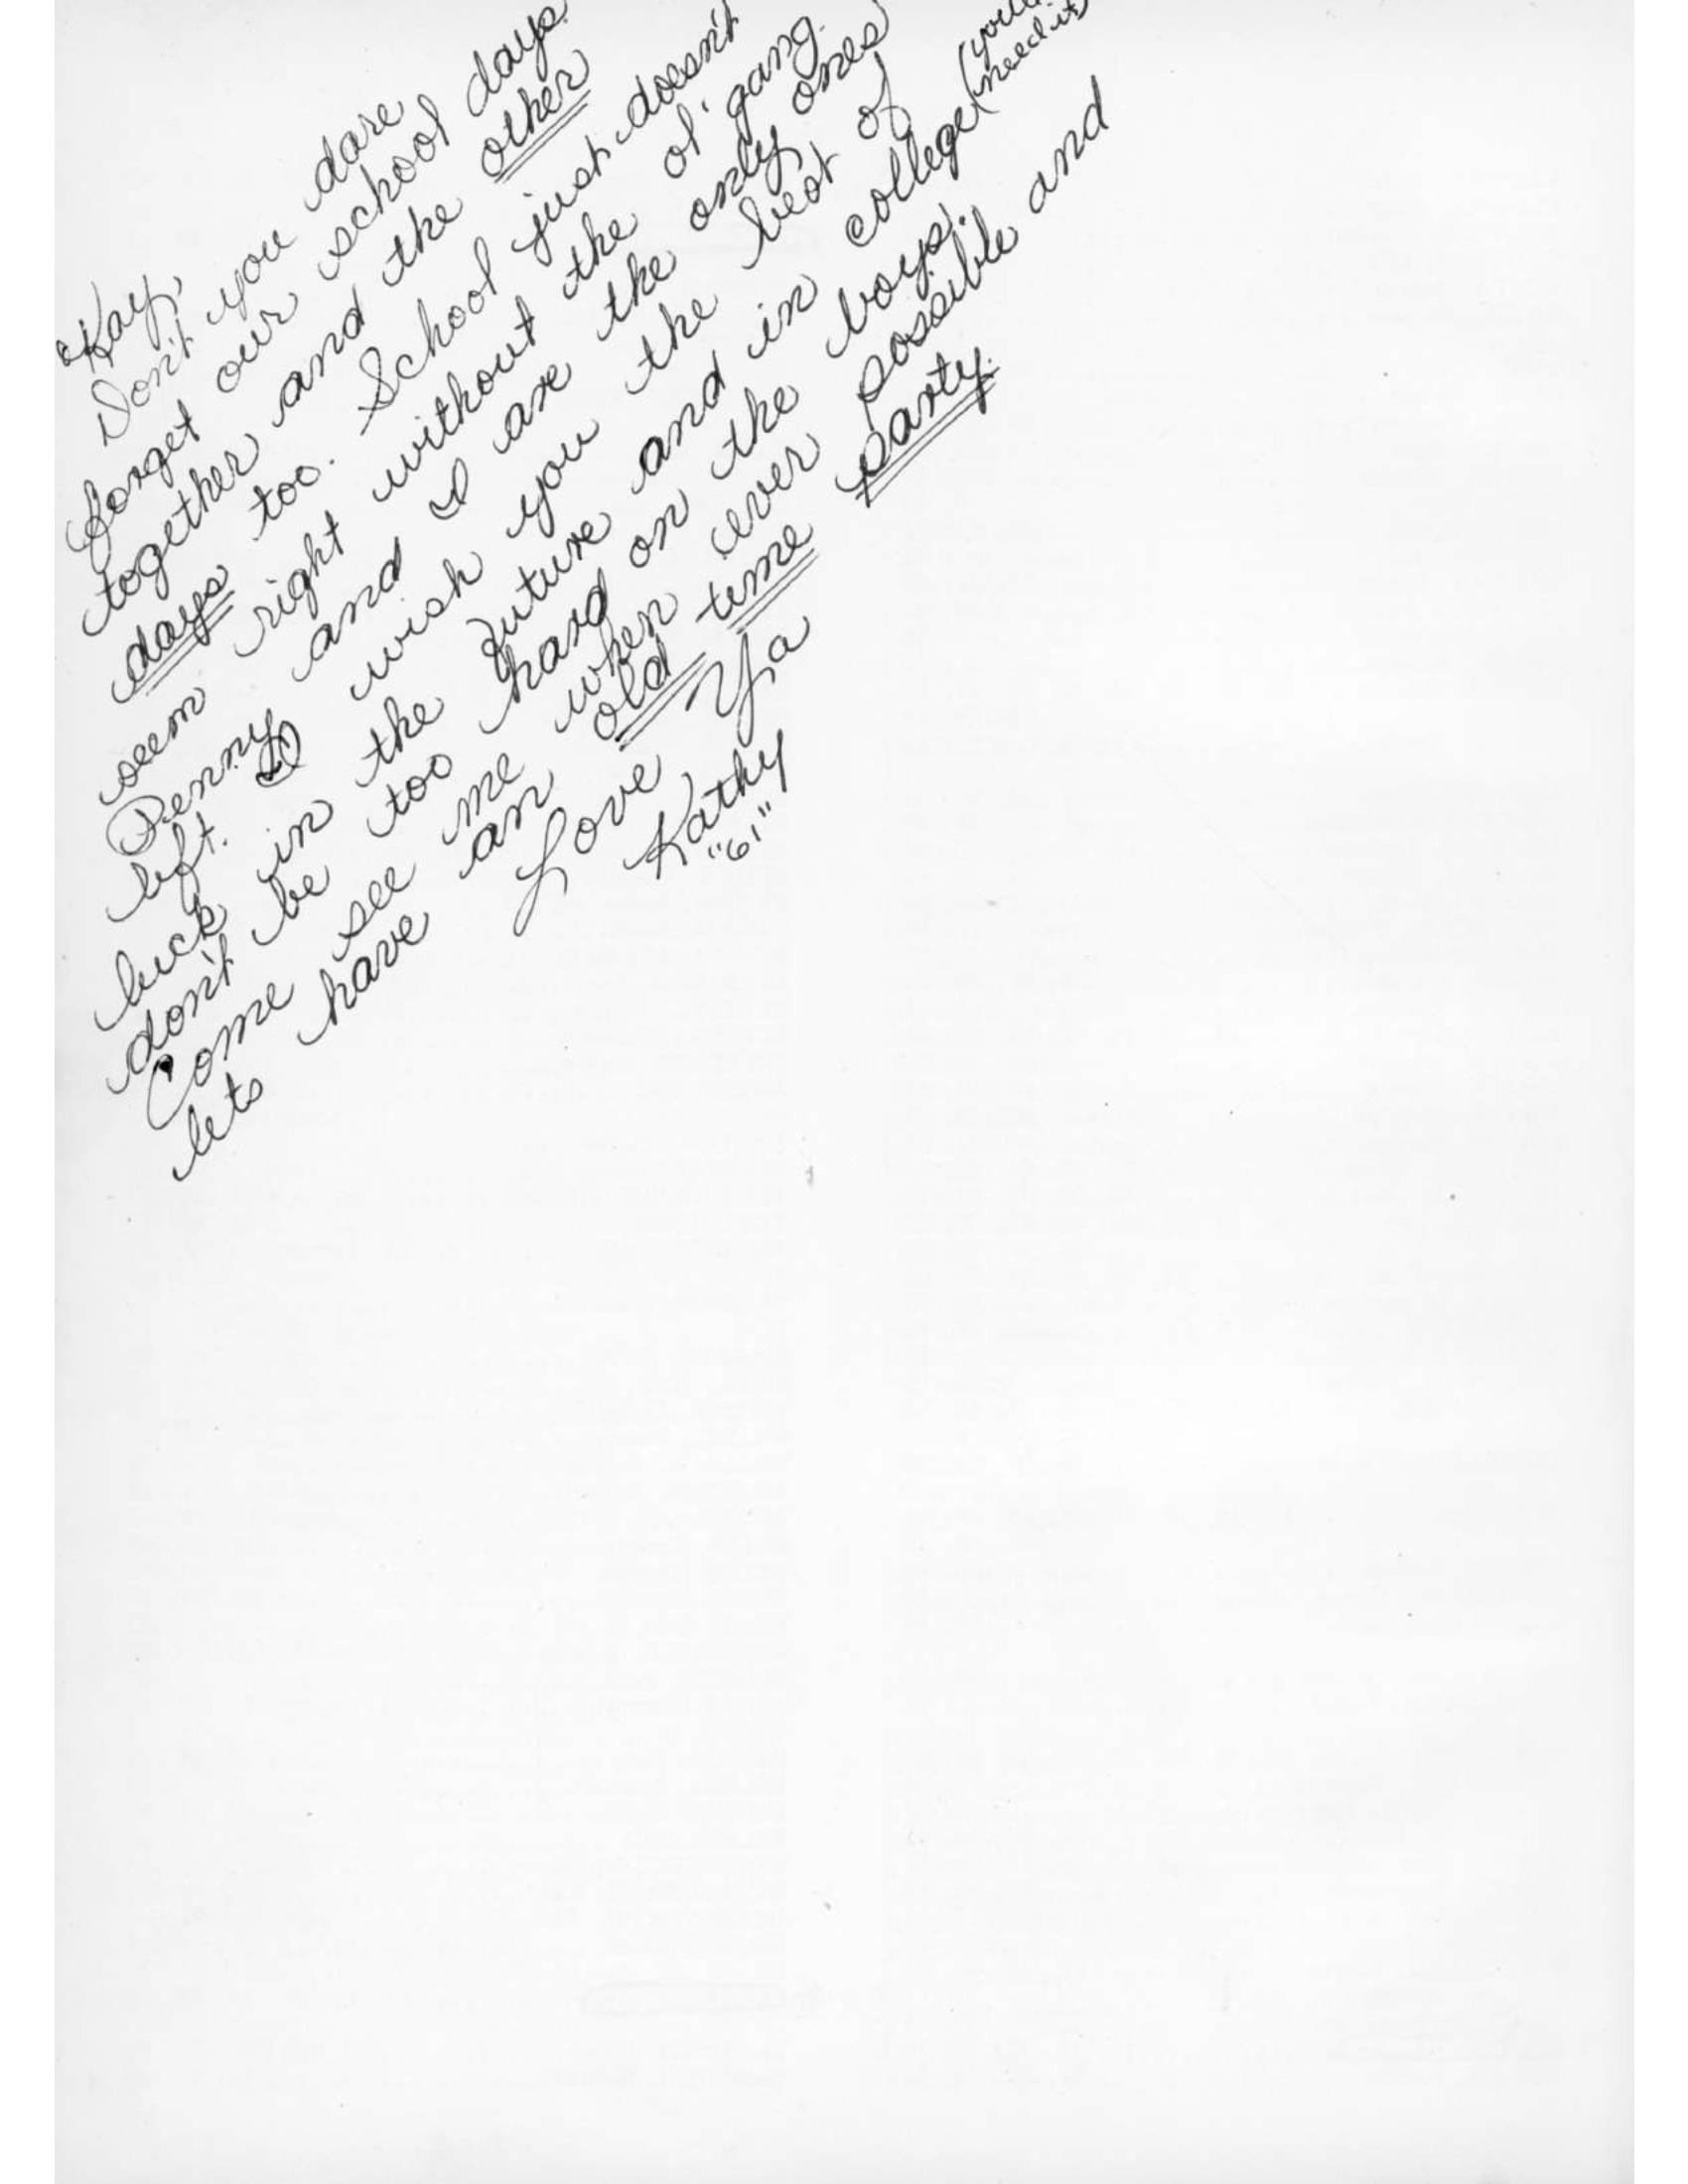 Kay,
Don't you dare
forget our school days
together and the other
days too. School just doesn't
seem right without the ol' gang.
Penny and I are the only ones
left. I wish you the best of
luck in the future and in college (you'll need it)
don't be too hard on the boys.
Come see me when ever possible and
lets have an old time party.
Love Ya
Kathy
"61"